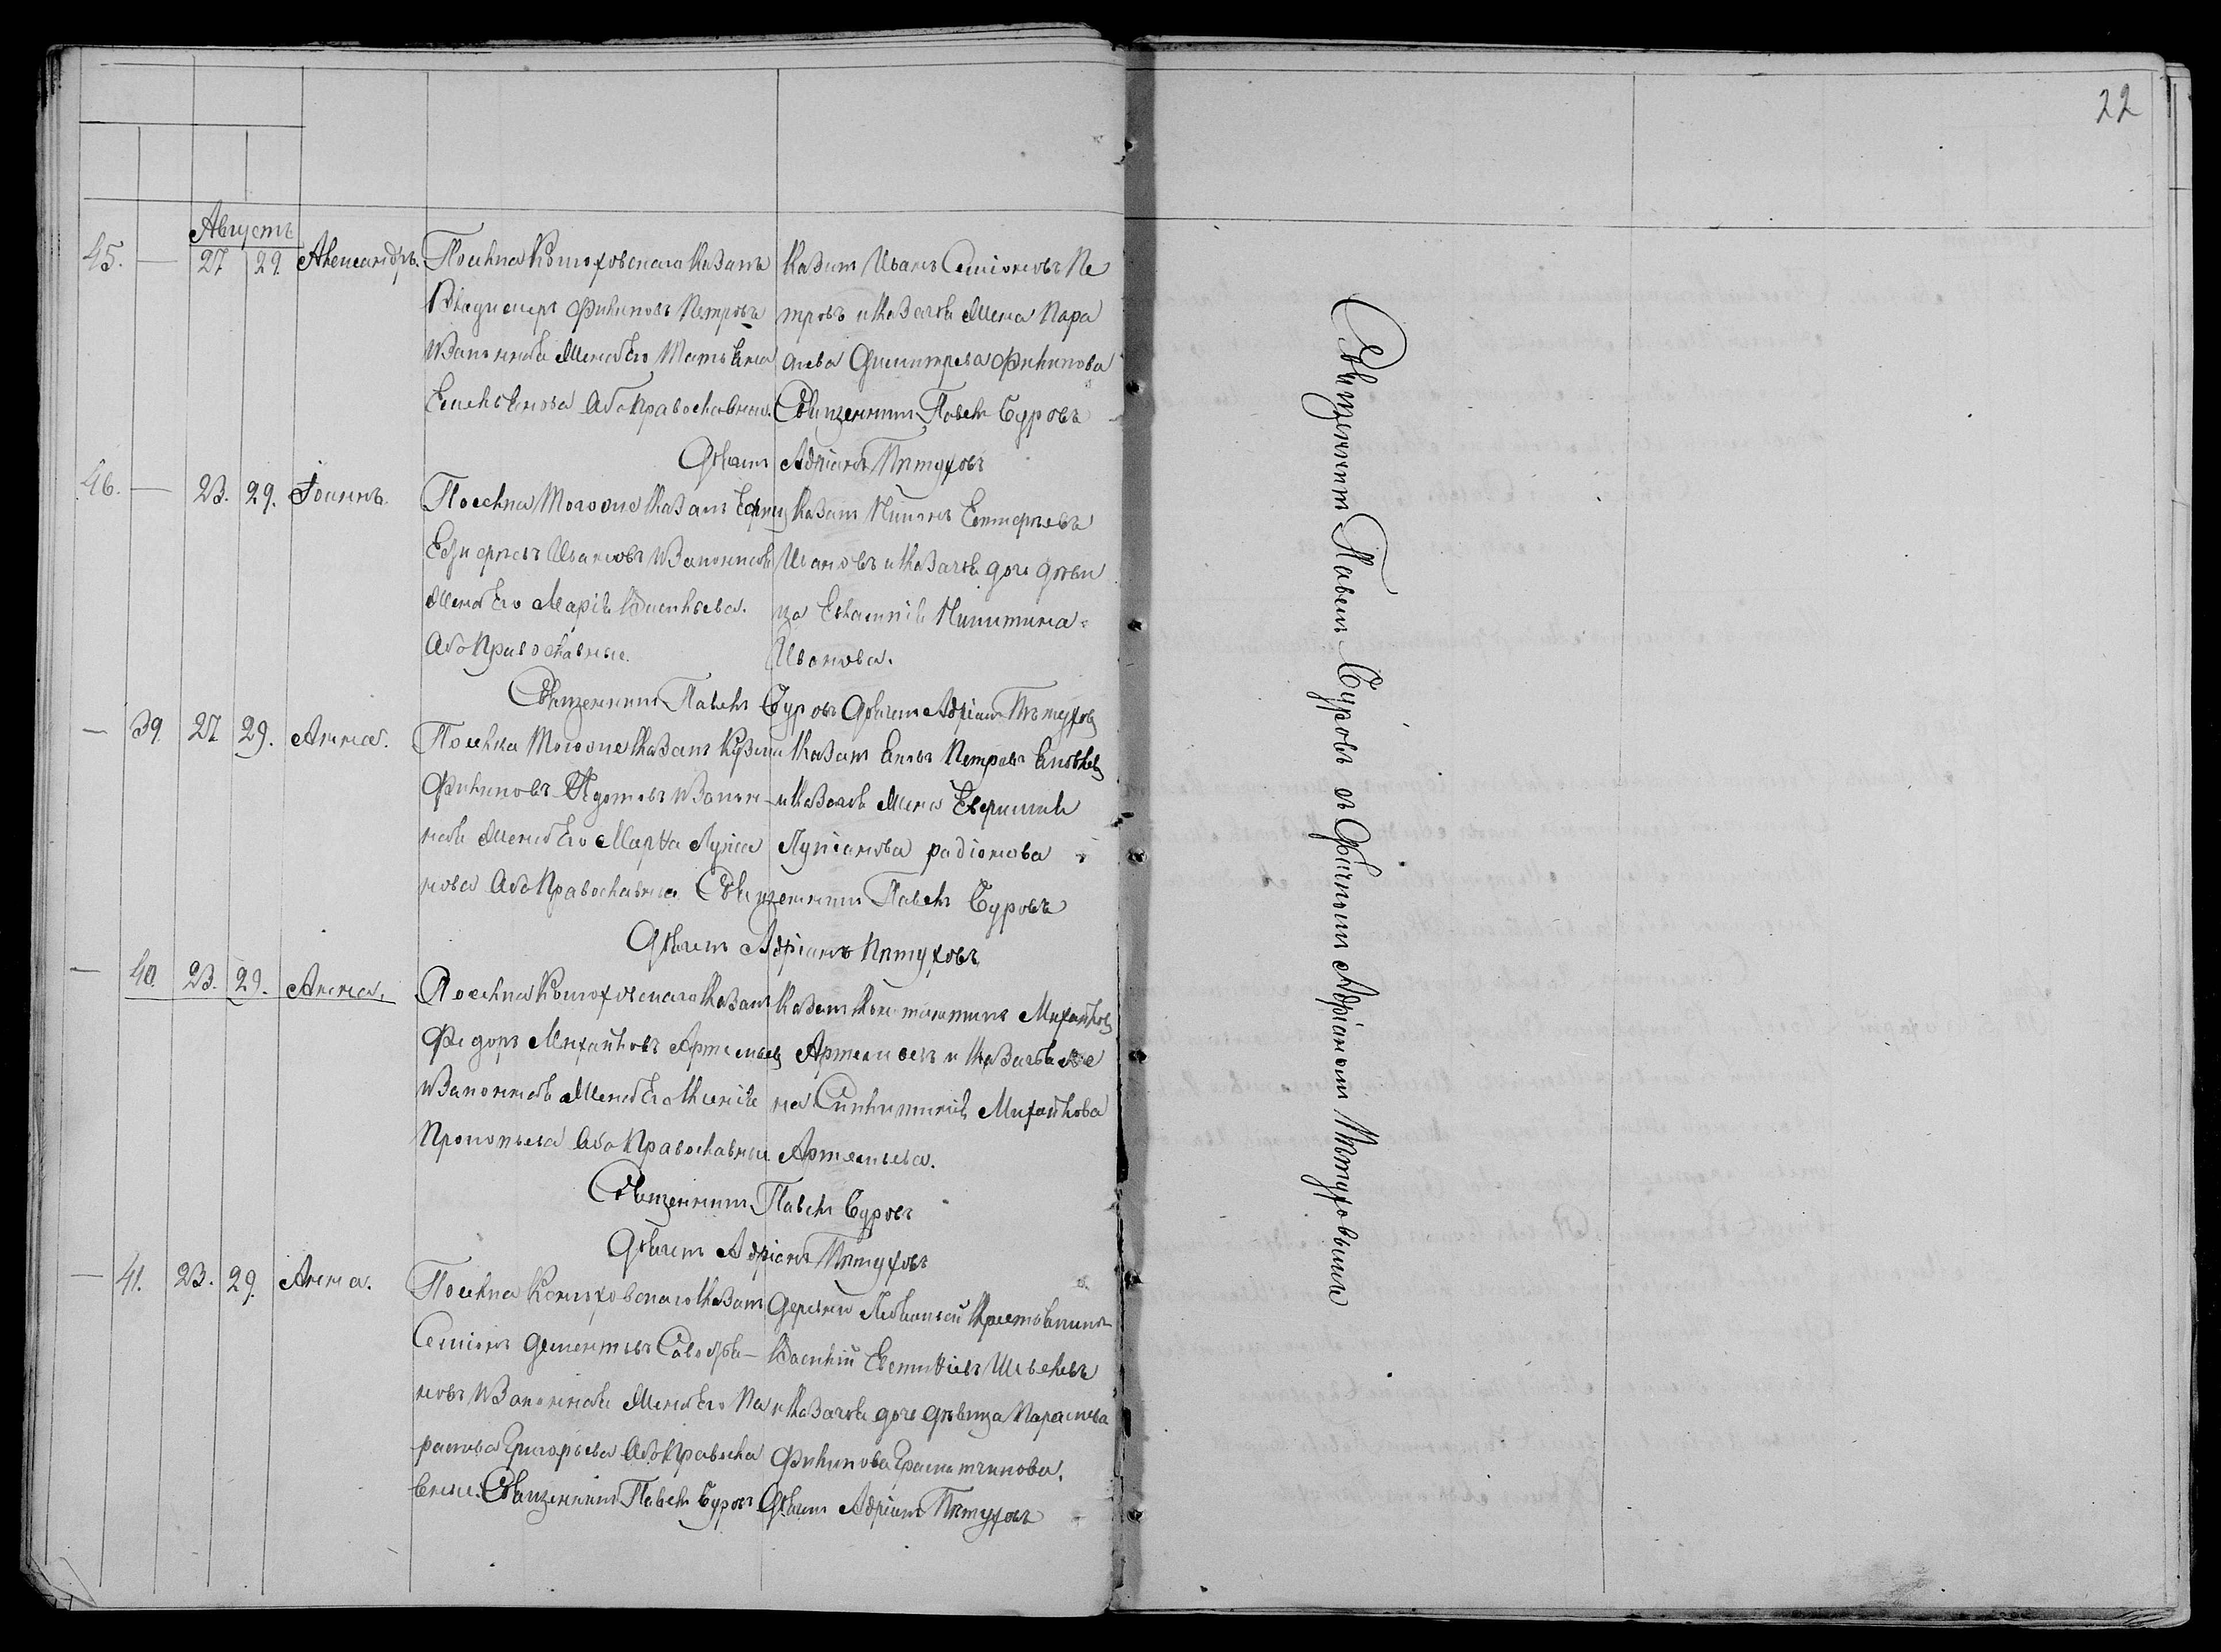 22
Августъ
45. — 27 29. Александръ. Поселка Конюховскаго Казакъ
Владимеръ Филиповъ Петровъ
и Законная Жена его Татьяна
Емельянова Оба Православные.
Казакъ Иванъ Симіоновъ Пе
тровъ и Казачья Жена Пара
скева Димитрева Филипова
Священникъ Павелъ Буровъ
Дьячекъ Адріанъ Пѣтуховъ
46. — 23. 29. Іоаннъ. Поселка Тогоже Казакъ
Ивановъ и Законная
Жена его Марія Васильева.
Оба Православные.
Казакъ
Ивановъ и Казачья дочь дѣви
ца Никитина
Иванова.
Священникъ Павелъ Буровъ Дьячекъ Адріанъ Пѣтуховъ
— 39. 27 29. Анна. Поселка Тогоже Казакъ Кузма
Филиповъ и Закон
ная Жена его Марѳа Лукіа
нова Оба Православные
Казакъ Петровъ
и Казачья Жена
Лукіанова радіонова
Священникъ Павелъ Буровъ
Дьячекъ Адріанъ Пѣтуховъ
— 40. 23. 29. Анна. Поселка Конюховскаго Казакъ
Федоръ Михайловъ Артемьевъ
и Законная Жена его Ксенія
Прокопьева Оба Православные
Казакъ Константинъ Михайловъ
Артемьевъ и Казачья Же
на Синклитикія Михайлова
Артемьева.
Священникъ Павелъ Буровъ
Дьячекъ Адріанъ Пѣтуховъ
— 41. 23. 29. Анна. Поселка Конюховскаго Казакъ
Симіонъ Дементьевъ
новъ и Законная Жена его Па
раскева Григорьева Оба Правосла
вные.
Деревни Крестьянинъ
Василій
и Казачья дочь дѣвица Параскева
Филипова
Священникъ Павелъ Буровъ Дьячекъ Адріанъ Пѣтуховъ
Священникъ Павелъ Буровъ съ Дьячкомъ Адріаномъ Пѣтуховымъ